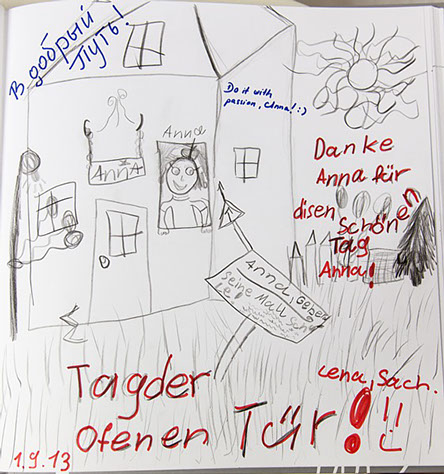 В добрый
путь!
Do it with
passion, Anna! :)
Anna
AnnA
Danke
Anna für
disen
schönen
Tag
Anna!
Anna,
seine
Tagder
Ofenen Tür!
Lena, Sach.
1.9.13